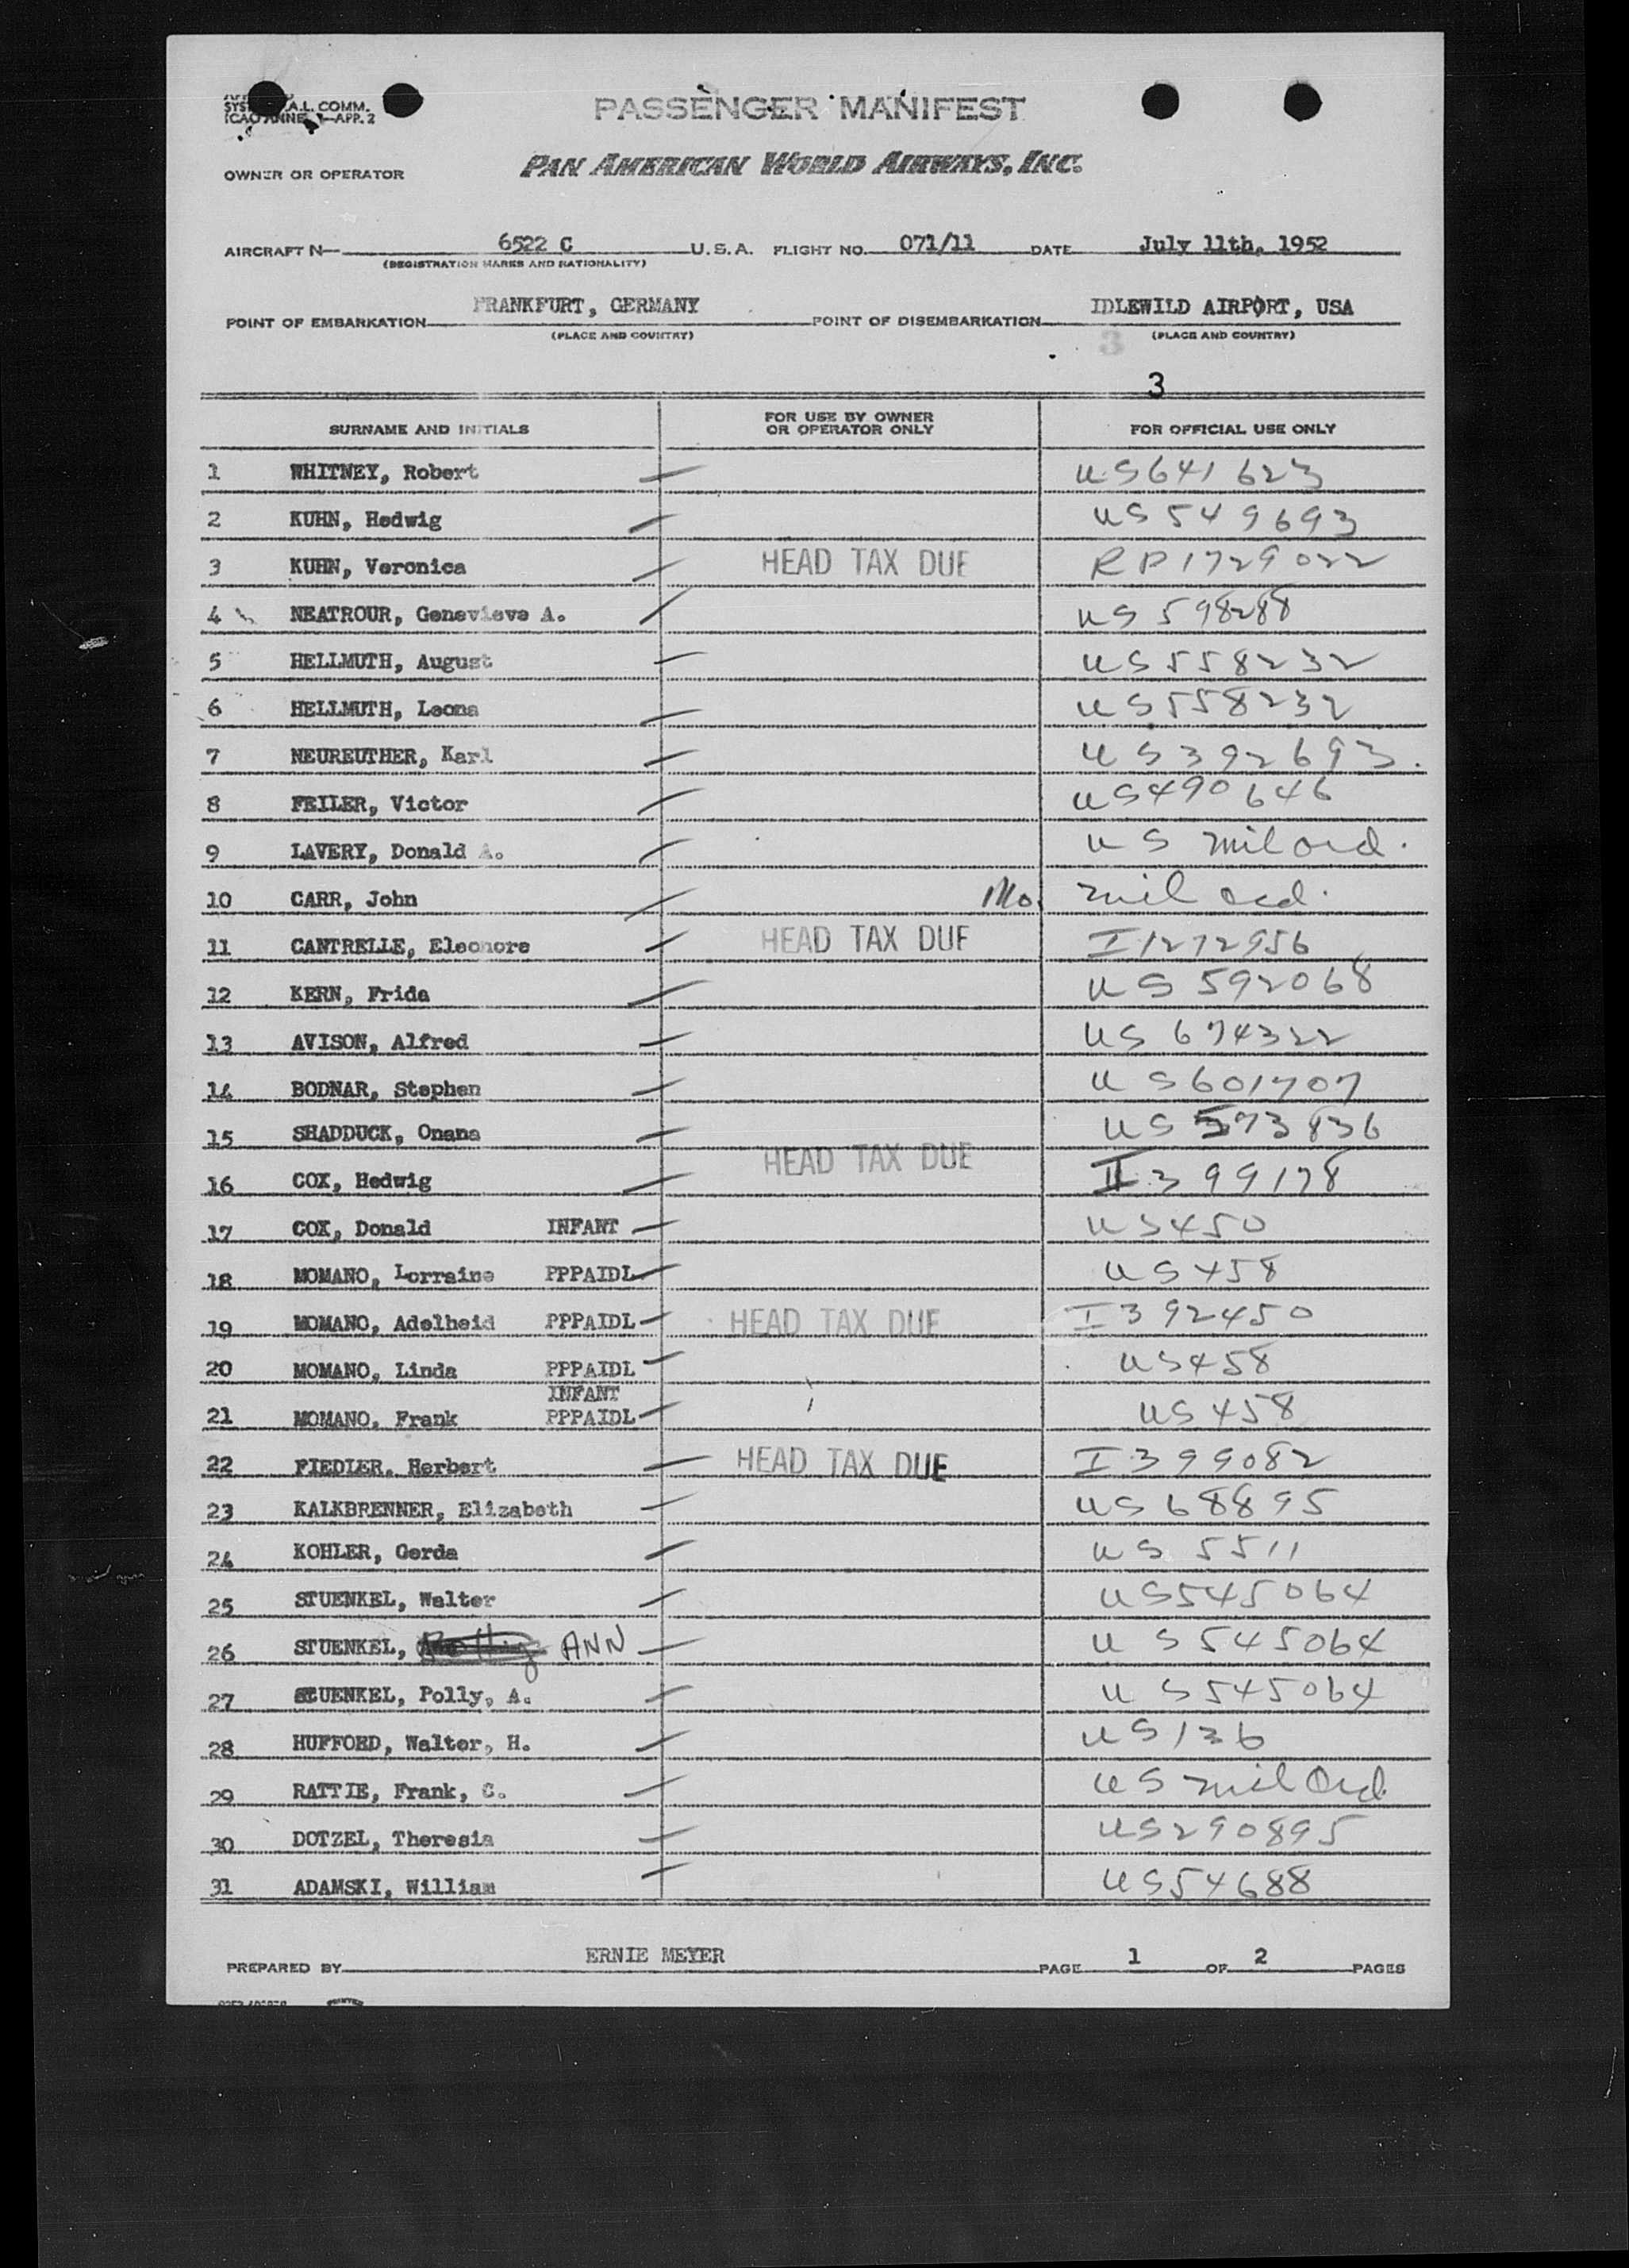 SYS A.L. COMM.
ICAO ANNE —APP. 2
PASSENGER MANIFEST
OWNER OR OPERATOR PAN AMERICAN WORLD AIRWAYS, INC.
AIRCRAFT N— 6522 C U.S.A. FLIGHT NO. 071/11 DATE July 11th, 1952
(REGISTRATION MARKS AND NATIONALITY)
POINT OF EMBARKATION FRANKFURT, GERMANY POINT OF DISEMBARKATION IDLEWILD AIRPORT, USA
(PLACE AND COUNTRY) 3 (PLACE AND COUNTRY)
3
SURNAME AND INITIALS FOR USE BY OWNER OR OPERATOR ONLY FOR OFFICIAL USE ONLY
1 WHITNEY, Robert US641623
2 KUHN, Hedwig US 549693
3 KUHN, Veronica HEAD TAX DUE RP1729022
4 NEATROUR, Genevieve A. US 598288
5 HELLMUTH, August US558232
6 HELLMUTH, Leona US558232
7 NEUREUTHER, Karl US392693.
8 FEILER, Victor US490646
9 LAVERY, Donald A. US mil ord.
10 CARR, John Mo. mil ord.
11 CANTRELLE, Eleonore HEAD TAX DUE I1272956
12 KERN, Frida US 592068
13 AVISON, Alfred US 674322
14 BODNAR, Stephen US601707
15 SHADDUCK, Onana US 573836
16 COX, Hedwig HEAD TAX DUE I 399178
17 COX, Donald INFANT US450
18 MOMANO, Lorraine PPPAIDL US458
19 MOMANO, Adelheid PPPAIDL HEAD TAX DUE I392450
20 MOMANO, Linda PPPAIDL US458
INFANT
21 MOMANO, Frank PPPAIDL US458
22 FIEDLER, Herbert HEAD TAX DUE I399082
23 KALKBRENNER, Elizabeth US68895
24 KOHLER, Gerda US 5511
25 STUENKEL, Walter US545064
26 STUENKEL, ANN US545064
27 STUENKEL, Polly, A. US545064
28 HUFFORD, Walter, H. US136
29 RATTIE, Frank, C. US mil Ord.
30 DOTZEL, Theresia US290895
31 ADAMSKI, William US54688
PREPARED BY ERNIE MEYER PAGE 1 OF 2 PAGES